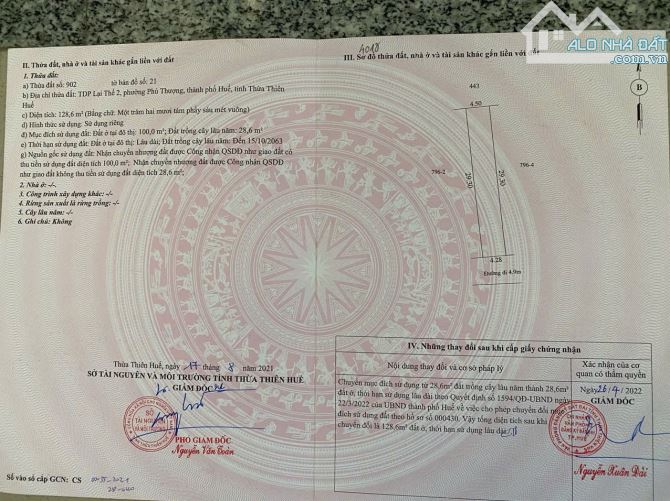 ALO NHÀ ĐẤT
II. Thửa đất, nhà ở và tài sản khác gắn liền với đất
1. Thửa đất:
a) Thửa đất số: 902 tờ bản đồ số: 21
b) Địa chỉ thửa đất: TDP Lại Thế 2, phường Phú Thượng, thành phố Huế, tỉnh Thừa Thiên
Huế
c) Diện tích: 128,6 m² (Bằng chữ: Một trăm hai mươi tám phẩy sáu mét vuông)
d) Hình thức sử dụng: Sử dụng riêng
đ) Mục đích sử dụng đất: Đất ở tại đô thị: 100,0 m²; Đất trồng cây lâu năm: 28,6 m²
e) Thời hạn sử dụng đất: Đất ở tại đô thị: Lâu dài; Đất trồng cây lâu năm: Đến 15/10/2063
g) Nguồn gốc sử dụng đất: Nhận chuyển nhượng đất được Công nhận QSDĐ như giao đất có
thu tiền sử dụng đất diện tích 100,0 m²; Nhận chuyển nhượng đất được Công nhận QSDĐ
như giao đất không thu tiền sử dụng đất diện tích 28,6 m².
2. Nhà ở: -/-
3. Công trình xây dựng khác: -/-
4. Rừng sản xuất là rừng trồng: -/-
5. Cây lâu năm: -/-
6. Ghi chú: Không
Thừa Thiên Huế, ngày 17 tháng 8 năm 2021
SỞ TÀI NGUYÊN VÀ MÔI TRƯỜNG TỈNH THỪA THIÊN HUẾ
GIÁM ĐỐC
SỞ
TÀI NGUYÊN
VÀ MÔI TRƯỜNG
PHÓ GIÁM ĐỐC
Nguyễn Văn Toàn
Số vào sổ cấp GCN: CS
4018
III. Sơ đồ thửa đất, nhà ở và tài sản khác gắn liền với đất
B
443
4.50
796-2
29.30
29.30
796-4
4.28
Đường đi 4.9m
IV. Những thay đổi sau khi cấp giấy chứng nhận
Nội dung thay đổi và cơ sở pháp lý
Xác nhận của cơ
quan có thẩm quyền
Chuyển mục đích sử dụng từ 28,6m² đất trồng cây lâu năm thành 28,6m²
đất ở, thời hạn sử dụng lâu dài theo Quyết định số 1594/QĐ-UBND ngày
22/3/2022 của UBND thành phố Huế về việc cho phép chuyển đổi mục
đích sử dụng đất theo hồ sơ số 000430. Vậy tổng diện tích sau khi
chuyển đổi là 128,6m² đất ở, thời hạn sử dụng lâu dài
Ngày 26/4/2022
GIÁM ĐỐC
Nguyễn Xuân Dài